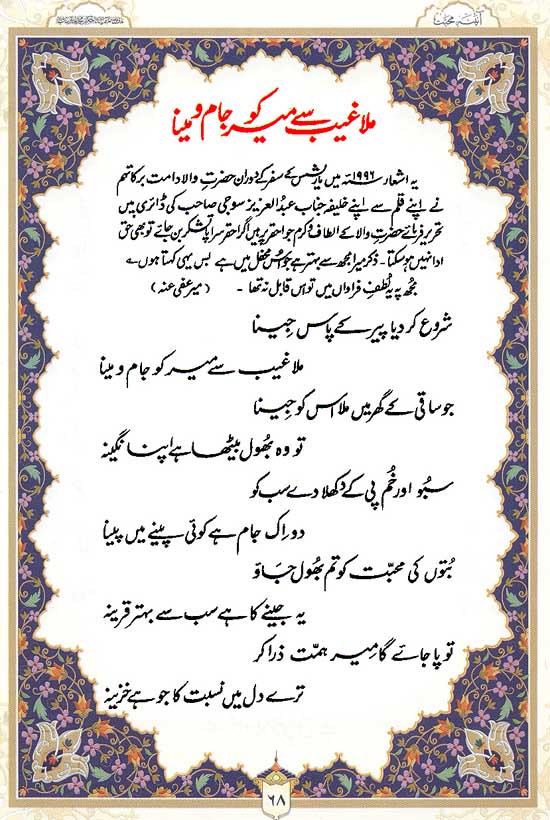 آئینۂ محبت
ملا غیب سے میر کو جام و مینا
یہ اشعار ۱۹۹۶ء میں ماریشس کے سفر کے دوران حضرتِ والا دامت برکاتہم
نے اپنے قلم سے اپنے خلیفہ جناب عبدالعزیز سوجی صاحب کی ڈائری میں
تحریر فرمائے حضرتِ والا کے الطاف و کرم جو احقر پر ہیں اگر احقر سراپا تشکر بن جائے تو بھی حق
ادا نہیں ہو سکتا۔ ذکر میرا مجھ سے بہتر ہے جو اس محفل میں ہے بس یہی کہتا ہوں ؎
مجھ پہ یہ لُطفِ فراواں میں تو اس قابل نہ تھا ۔ (میر عفی عنہ)
شروع کر دیا پیر کے پاس جینا
ملا غیب سے میر کو جام و مینا
جو ساقی کے گھر میں ملا اس کو جینا
تو وہ بھُول بیٹھا ہے اپنا نگینہ
سبُو اور خُم پی کے دکھلا دے سب کو
دو اِک جام ہے کوئی پینے میں پینا
بُتوں کی محبّت کو تم بھُول جاؤ
یہ جینے کا ہے سب سے بہتر قرینہ
تو پا جائے گا میر ہمّت ذرا کر
ترے دل میں نسبت کا جو ہے خزینہ
۶۸